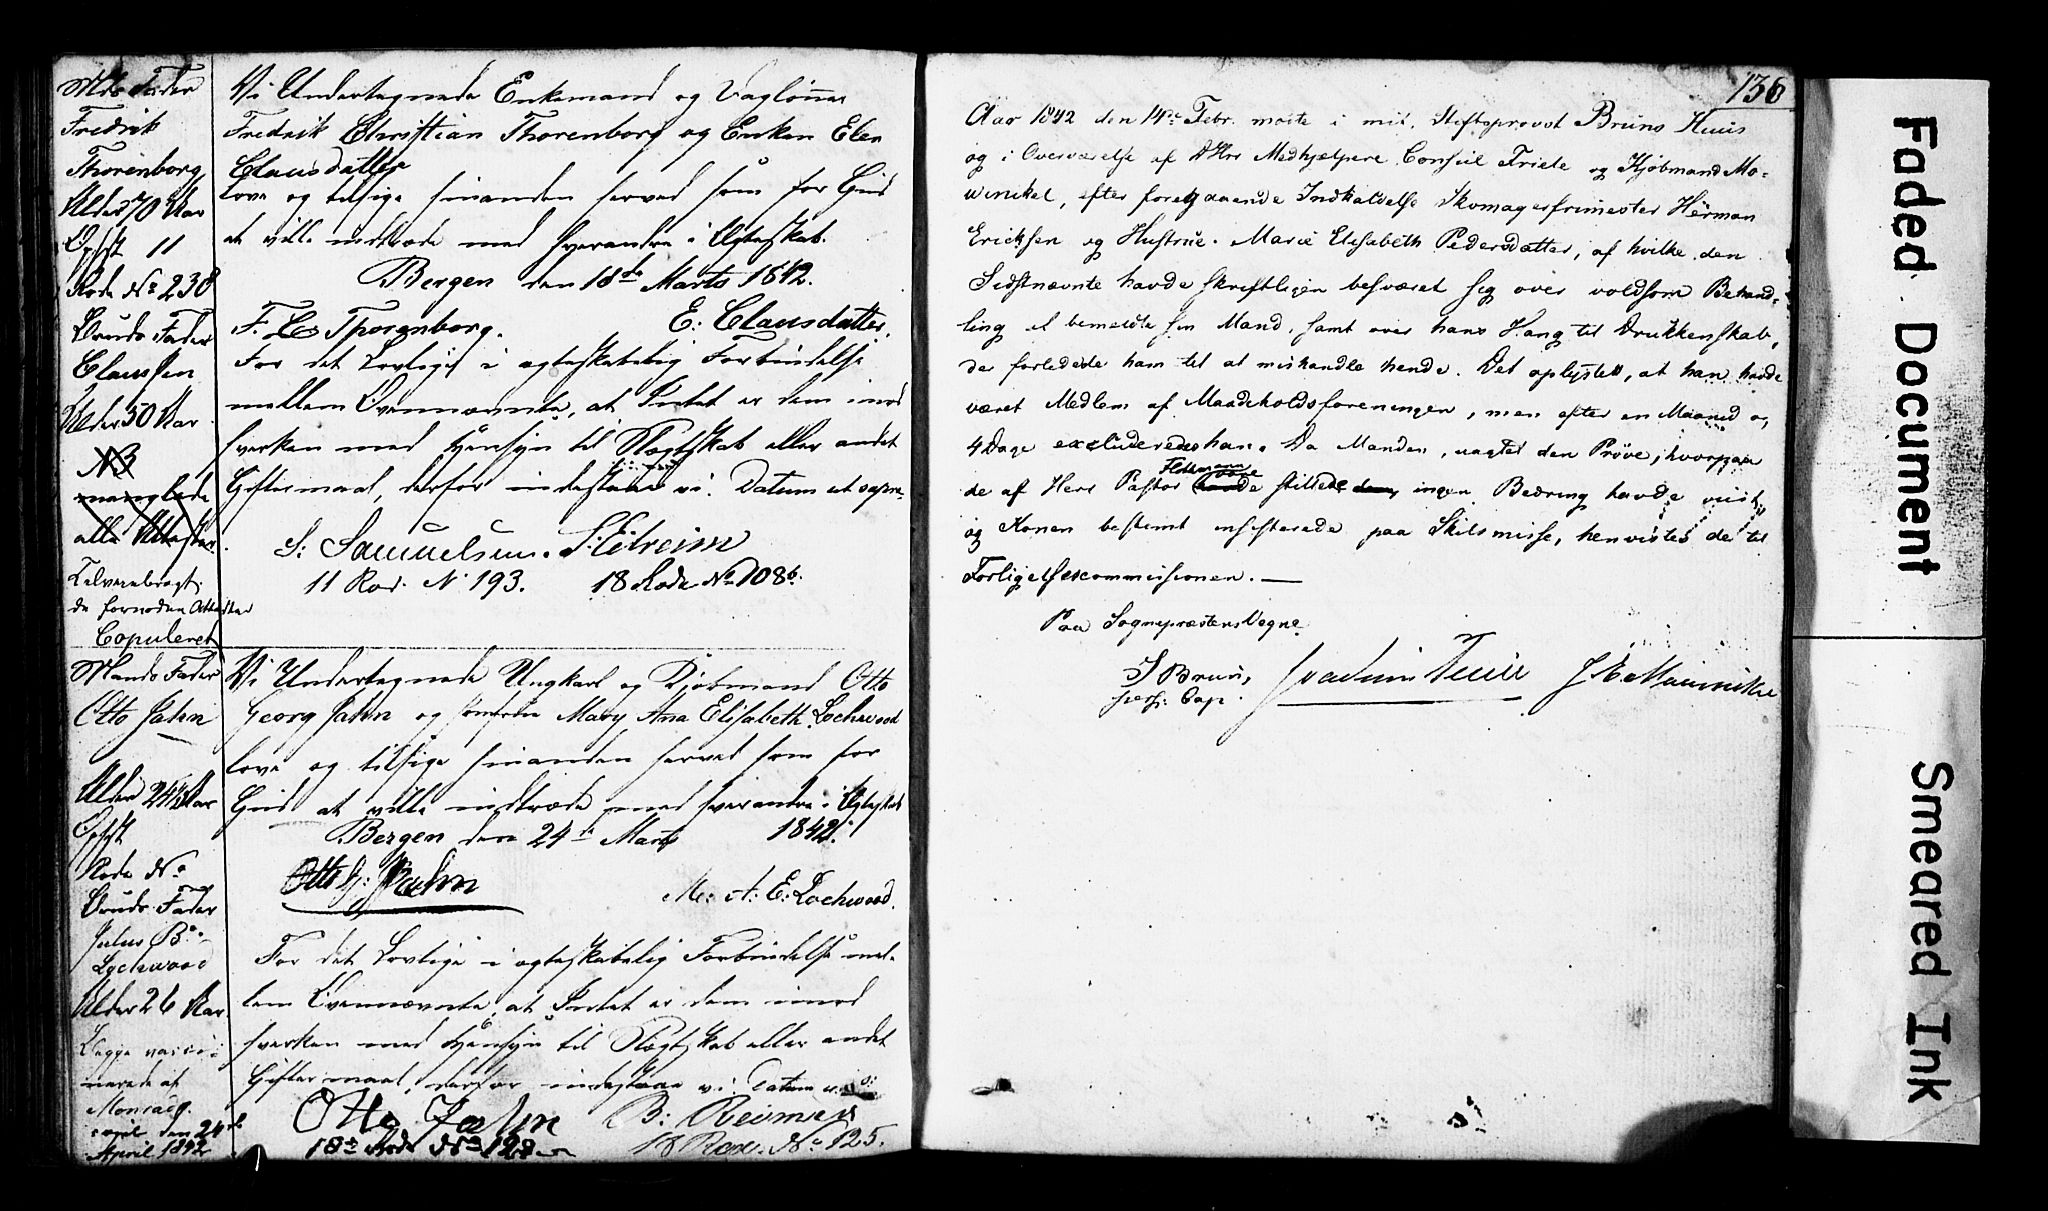 Mds Fader
Fredrik
Thorenborg,
Alder 70 Aar
Opfst 11
Rode No 238
Bruds Fader
Claussen
Alder 50 Aar
NB
manglede
alle Attester
Tilveiebragt
de fornødne Attester
Copuleret
Vi Undertegnede Enkemand og Daglönner
Fredrik Christian Thorenborg og Enken Elen
Clausdatter
love og tilsige hinanden herved som for Gud
at ville indtræde med hverandre i Ægteskab.
Bergen den 18de Marts 1842.
F. C. Thorenborg. E: Clausdatter.
For det Lovlige i ægteskabelig Forbindelse
mellem Ovennævnte, at Intet er dem imod
hverken med Hensyn til Slægtskab eller andet
Giftermaal, derfor indestaae vi. Datum ut supra.
S: Samuelsen. S: Eitreim
11 Rod. N. 193. 18 Rode No 108b.
Mands Fader
Otto Jahn
Alder 24½ Aar
Opfst
Rode No
Bruds Fader
Julus B.
Lochwood
Alder 26 Aar.
Begge vacci-
nerede af
april den 24de
April 1842
Vi Undertegnede Ungkarl og Kjøbmand Otto
Georg Jahn og Jomfrue Mary Ana Elisabeth Lochwood
love og tilsige hinanden herved som for
Gud at ville indtræde med hverandre i Ægteskab
Bergen den 24de Marts 1842.
Otto G: Jahn
M: A: E: Lochwood.
For det Lovlige i ægteskabelig Forbindelse mel-
lem Ovennævnte, at Intet er dem imod
hverken med Hensyn til Slægtskab eller andet
Giftermaal, derfor indestaae vi Datum u. s.
Otto Jahn B: Reimers
18de Rode No 128 18 Rode. No 125.
136
Aar 1842 den 14de Febr. mødte i mit, Stiftsprovst Bruns Huus
og i Overværelse af DHrr Medhjelpere Consul Friele og Kjøbmand Mo-
winckel, efter foregaaende Indkaldelse Skomagerfrimester Herman
Ericksen og Hustrue Marie Elisabeth Pedersdatter, af hvilke den
Sidstnævnte havde skriftligen besværet sig over voldsom Behand-
ling af bemeldte sin Mand, samt over hans Hang til Drukkenskab,
der forledede ham til at mishandle hende. Det oplystes, at han havde
været Medlem af Maadeholdsforeningen, men efter en Maaned og
4 Dage excluderedes han. Da Manden, uagtet den Prøve, hvorpaa
de af Herr Pastor havde stilled dem, ingen Bedring havde viist,
og Konen bestemt insisterede paa Skilsmisse, henvistes de til
Forligelsescommissionen. —
Paa Sognepræstens Vegne
S Brun, Joachim Friele J E Mowinckel
pers: Cap.
Faded Document
Smeared Ink